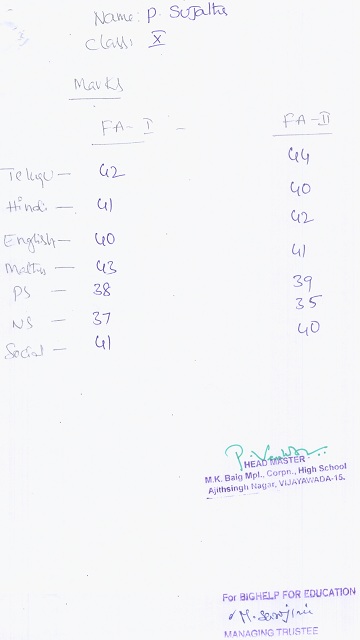 Name: P. Sujatha
Class: X
Marks
FA-I - FA-II
Telugu - 42 44
Hindi - 41 40
English - 40 42
Maths - 43 41
PS - 38 39
NS - 37 35
Social - 41 40
HEAD MASTER
M.K. Baig Mpl., Corpn., High School
Ajithsingh Nagar, VIJAYAWADA-15.
For BIGHELP FOR EDUCATION
MANAGING TRUSTEE